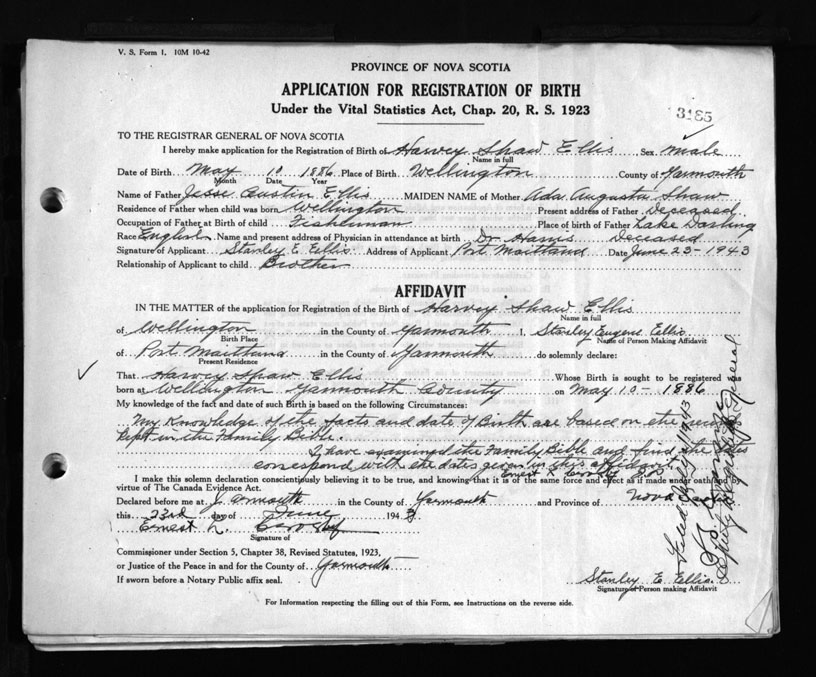 V. S. Form 1. 10M 10-42
PROVINCE OF NOVA SCOTIA
APPLICATION FOR REGISTRATION OF BIRTH
Under the Vital Statistics Act, Chap. 20, R. S. 1923
3185
TO THE REGISTRAR GENERAL OF NOVA SCOTIA
I hereby make application for the Registration of Birth of Harvey Shaw Ellis Sex male
Name in full
Date of Birth May 10 1886 Place of Birth Wellington County of Yarmouth
Month Date Year
Name of Father Jesse Austin Ellis MAIDEN NAME of Mother Ada Augusta Shaw
Residence of Father when child was born Wellington Present address of Father Deceased
Occupation of Father at Birth of child Fisherman Place of birth of Father Lake Darling
Race English Name and present address of Physician in attendance at birth Dr Harris Deceased
Signature of Applicant Stanley E. Ellis Address of Applicant Port Maitland Date June 23-1943
Relationship of Applicant to child Brother
AFFIDAVIT
IN THE MATTER of the application for Registration of the Birth of Harvey Shaw Ellis
Name in full
of Wellington in the County of Yarmouth I, Stanley Eugene Ellis
Birth Place Name of Person Making Affidavit
of Port Maitland in the County of Yarmouth do solemnly declare:
Present Residence
That Harvey Shaw Ellis Whose Birth is sought to be registered was
born at Wellington Yarmouth County on May 10-1886
My knowledge of the fact and date of such Birth is based on the following Circumstances:
My knowledge of the facts and date of Birth are based on the
kept in the Family Bible.
I have examined the Family Bible and find the dates
correspond with the dates given in this affidavit
Ernest L. Crosby
I make this solemn declaration conscientiously believing it to be true, and knowing that it is of the same force and effect as if made under oath and by
virtue of The Canada Evidence Act.
Declared before me at Yarmouth in the County of Yarmouth and Province of Nova
this 23rd day of June 1943
Ernest L. Crosby
Signature of
Commissioner under Section 5, Chapter 38, Revised Statutes, 1923,
or Justice of the Peace in and for the County of Yarmouth
If sworn before a Notary Public affix seal.
Stanley E. Ellis
Signature of Person making Affidavit
For Information respecting the filling out of this Form, see Instructions on the reverse side.
Deputy Registrar General